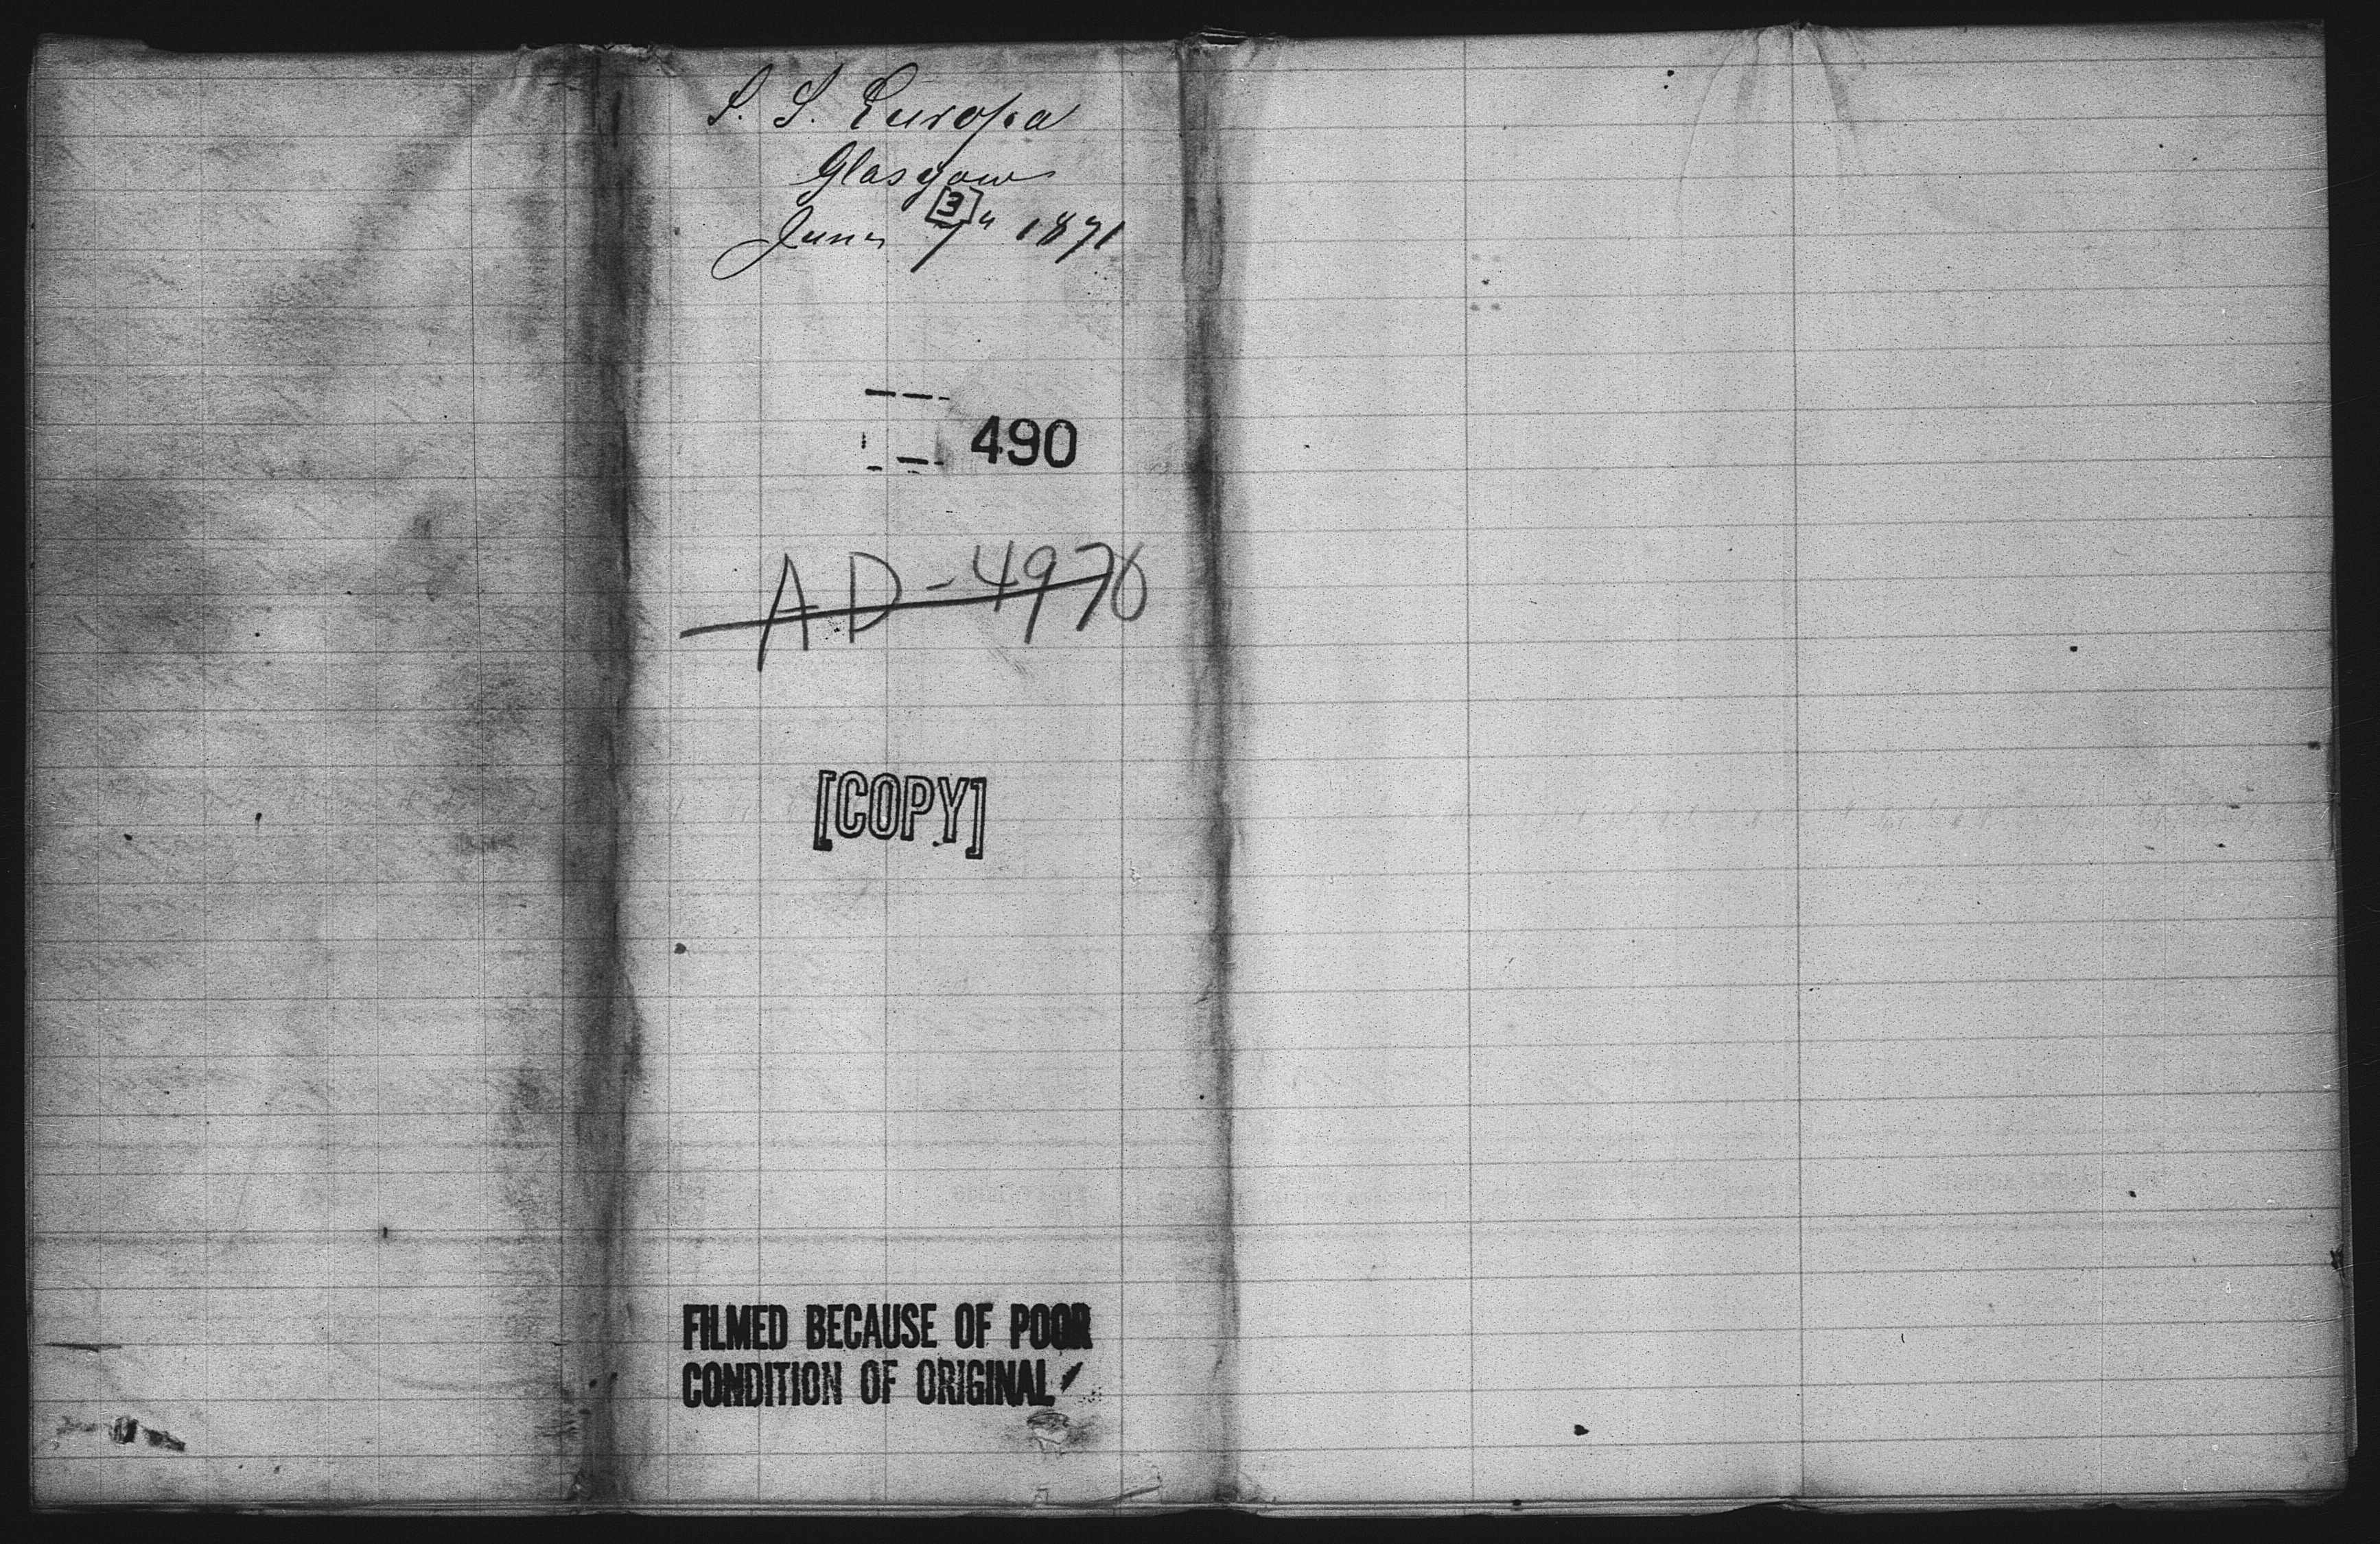 S. S. Europa
Glasgow
[3]
June 7" 1871
490
AD-4976
[COPY]
FILMED BECAUSE OF POOR
CONDITION OF ORIGINAL